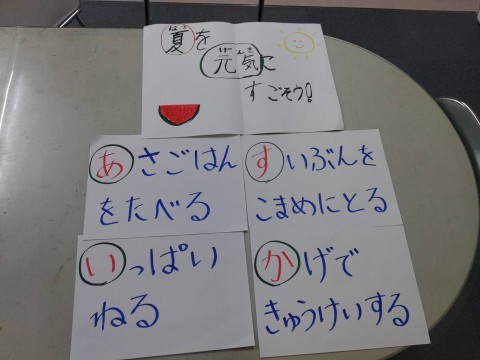 夏を
元気に
すごそう!
あさごはん
をたべる
すいぶんを
こまめにとる
いっぱい
ねる
かげで
きゅうけいする